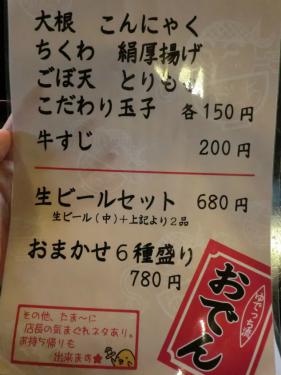 大根　こんにゃく
ちくわ　絹厚揚げ
ごぼ天　とりもも
こだわり玉子　各150円
牛すじ　200円
生ビールセット　680円
生ビール（中）＋上記より2品
おまかせ6種盛り
780円
ゆでっち流
おでん
その他、たま〜に
店長の気まぐれネタあり。
お持ち帰りも
出来ます★